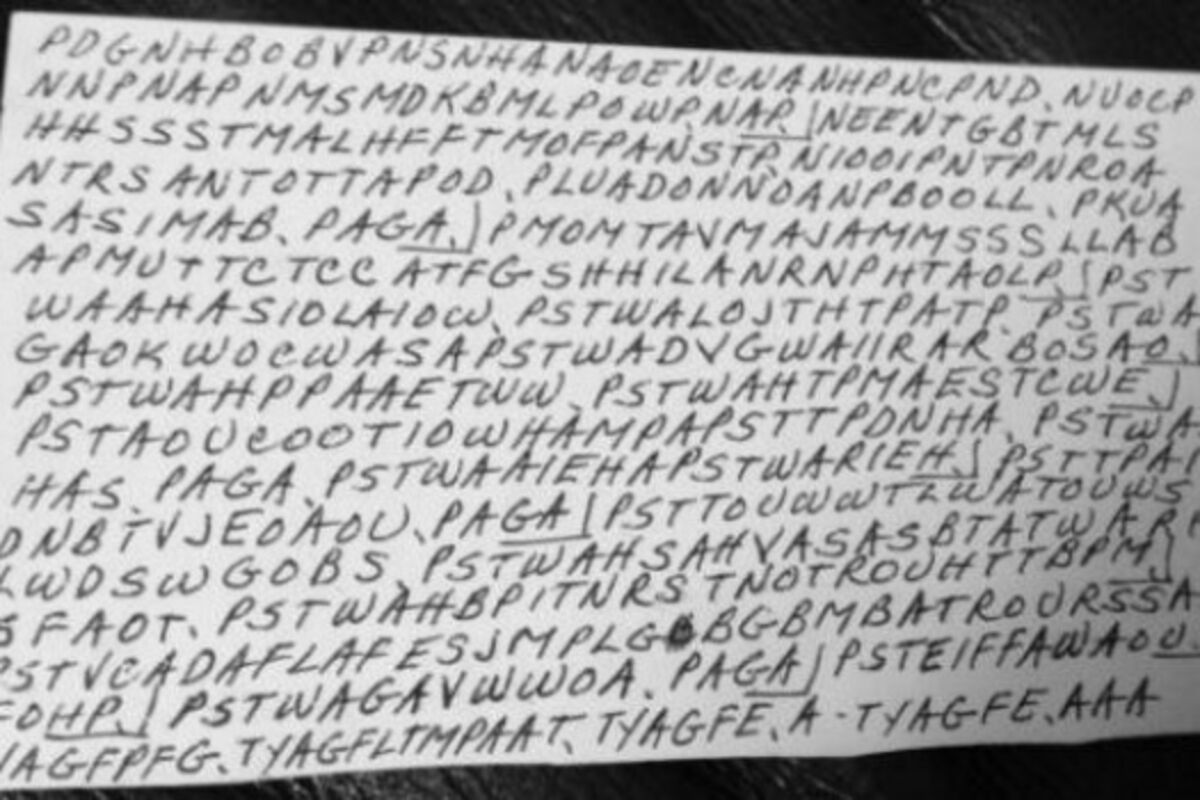 PDGNHBOBVPNSNHANAOENCNANHPNCPND. NUOCP
NNPNAPNMSMDKBMLPOWP. NAP. NEENTGBTMLS
HHSSSTMALHFFTMOFPANSTP. NIOOIPNTPNROA
NTRSANTOTTAPOD. PLUADONNOANPBOOLL. PKUA
SASIMAB. PAGA. PMOMTAVMAJAMMSSSLLAB
APMUTTCTCCATFGSHHILANRNPHTAOLP. PST
WAAHASIOLAIOW. PSTWALOJTHTPATP. PSTWA
GAOKWOCWASAPSTWADVGWAIIRAR BOSAO.
PSTWAHPPAAETWW. PSTWAHTPMAESTCWE.
PSTAOUCOOTIOWHAMPAPSTTPDNHA. PSTWA
HAS. PAGA. PSTWAAIEHAPSTWARIEH. PSTTPAI
DNBTVJEOAOU. PAGA PSTTOUWWTLWATOUWS
LWDSWGOBS. PSTWAHSAHVASASBTATWAR
SFAOT. PSTWAHBPITNRSTNOTROUHTTBPM.
PSTVCADAFLAFESJMPLG BGBMBATROURSSA
FOHP. PSTWAGAVWWOA. PAGA PSTEIFFAWAOU.
YAGFPFG. TYAGFLTMPAAT. TYAGFE. A-TYAGFE. AAA